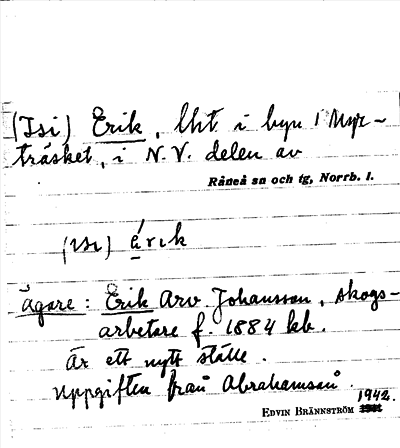 (Isi) Erik, lht. i byn Myr-
träsket, i N.V. delen av
Råneå sn och tg, Norrb. l.
(ɪsɪ) érɪk
Ägare: Erik Arv. Johansson, skogs-
arbetare f. 1884 kb.
Är ett nytt ställe.
Uppgiften från Abrahamsån.
EDVIN BRÄNNSTRÖM 1942.